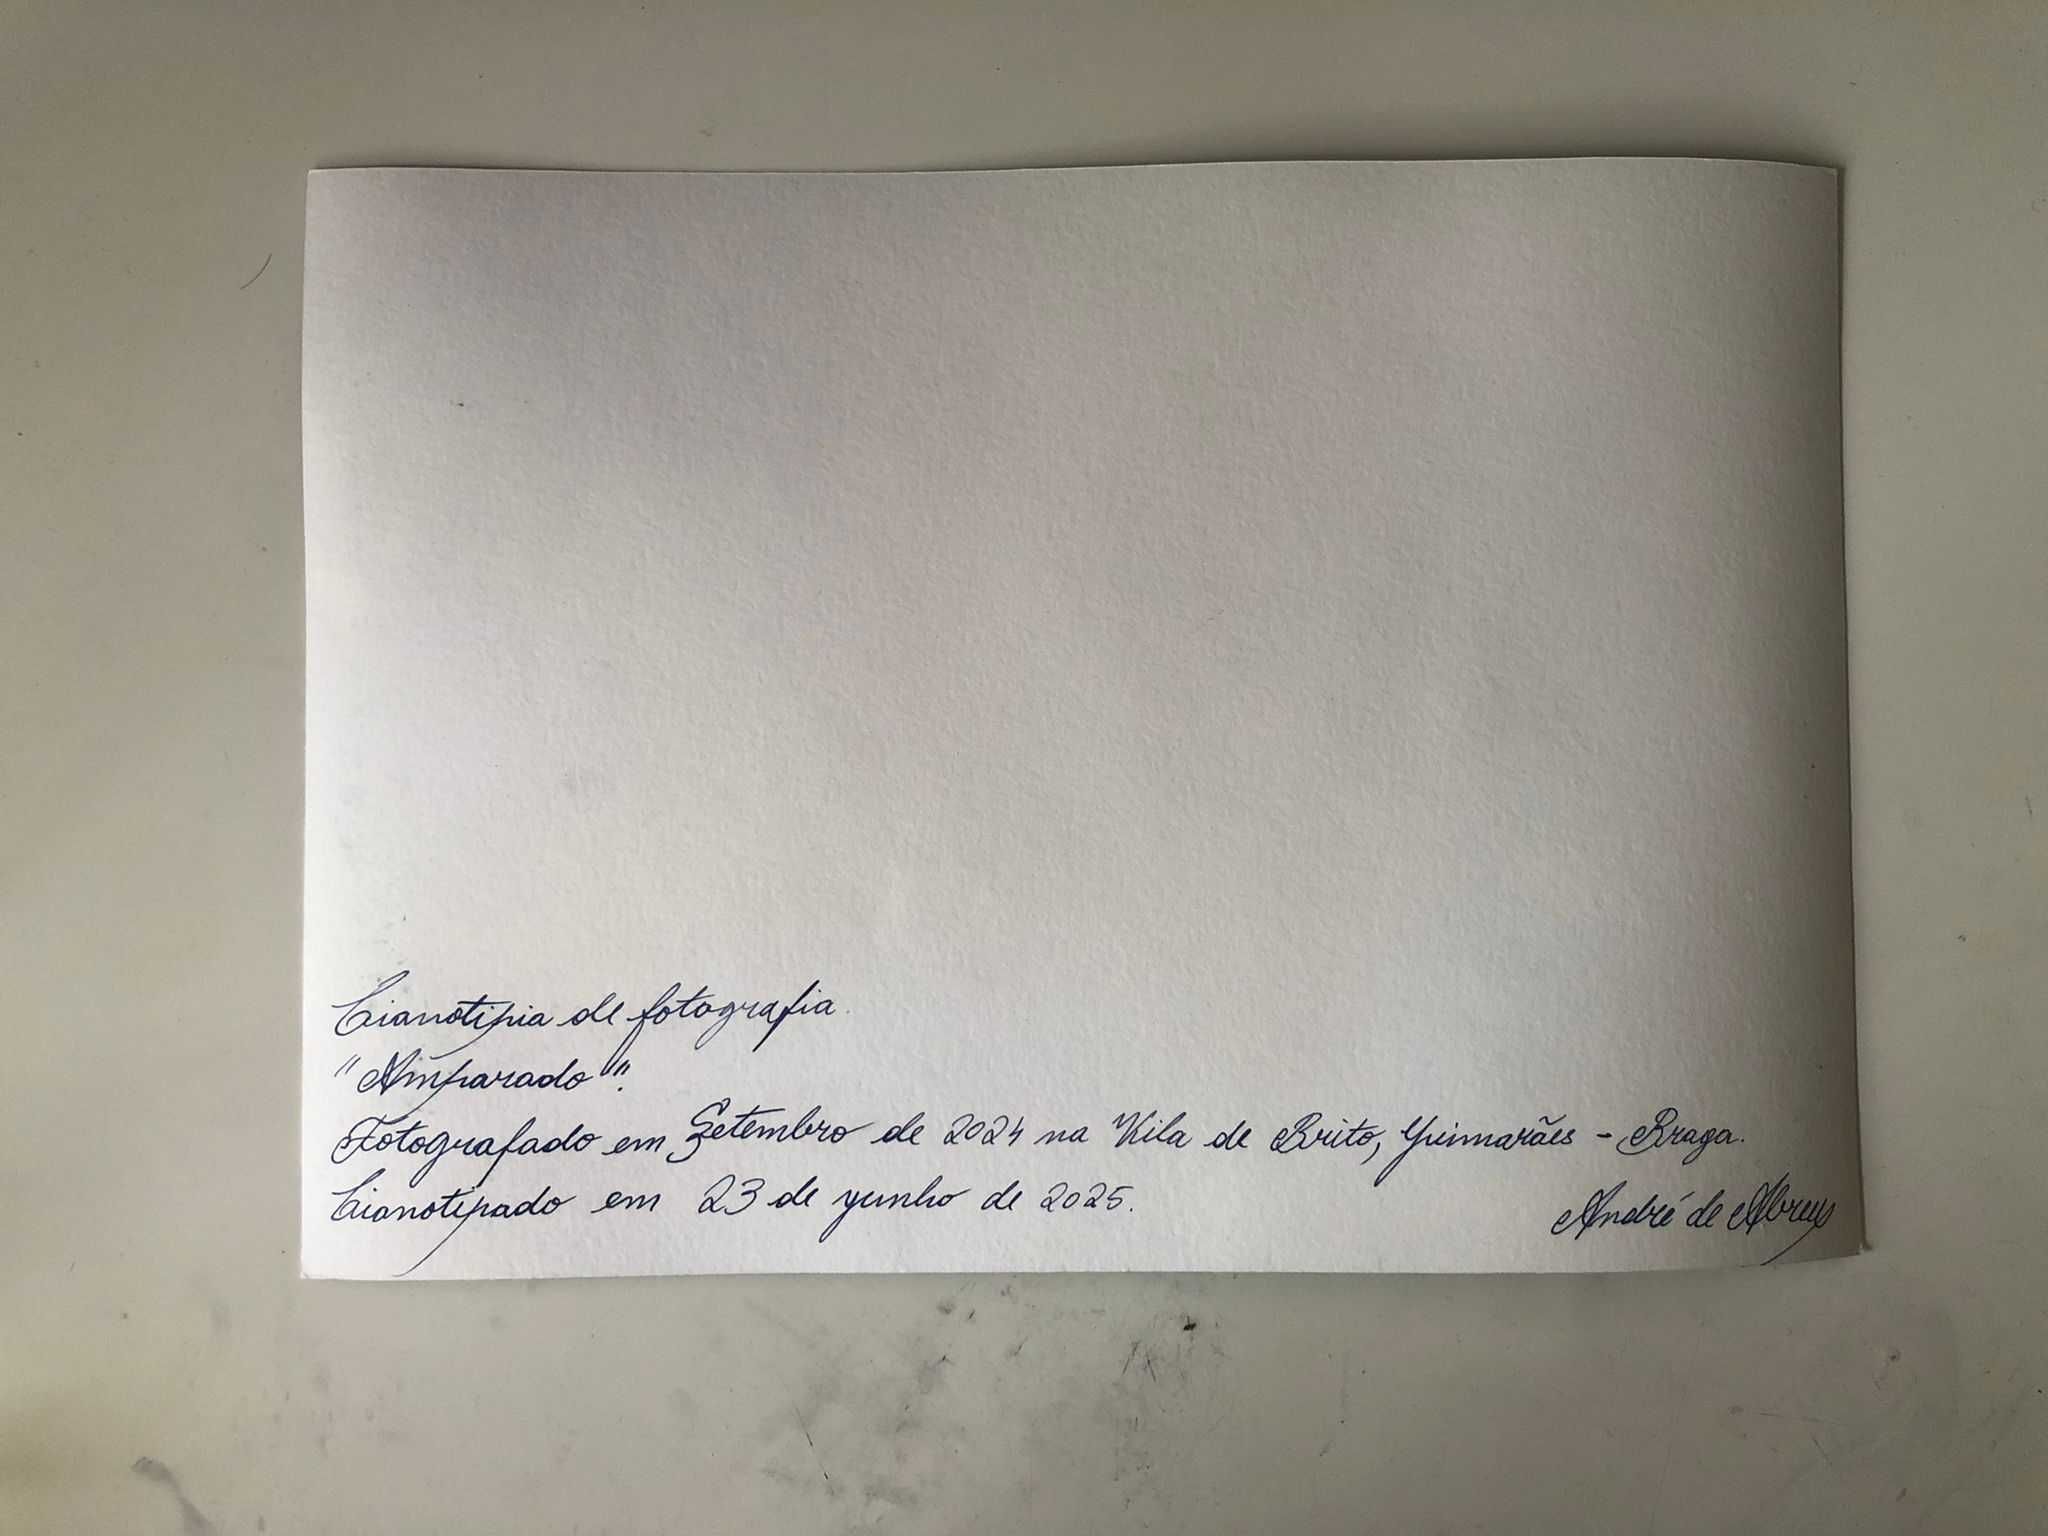 Cianotipia de fotografia.
"Amparado".
Fotografado em Setembro de 2024 na Vila de Brito, Guimarães - Braga.
Cianotipado em 23 de junho de 2025.
André de Abreu